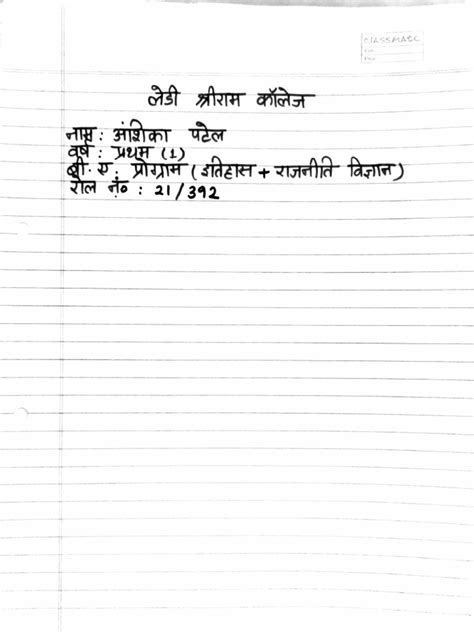 CLASSMATE
लेडी श्रीराम कॉलेज
नाम : अंशिका पटेल
वर्ष : प्रथम (1)
बी. ए. प्रोग्राम (इतिहास + राजनीति विज्ञान)
रोल नं० : 21/392